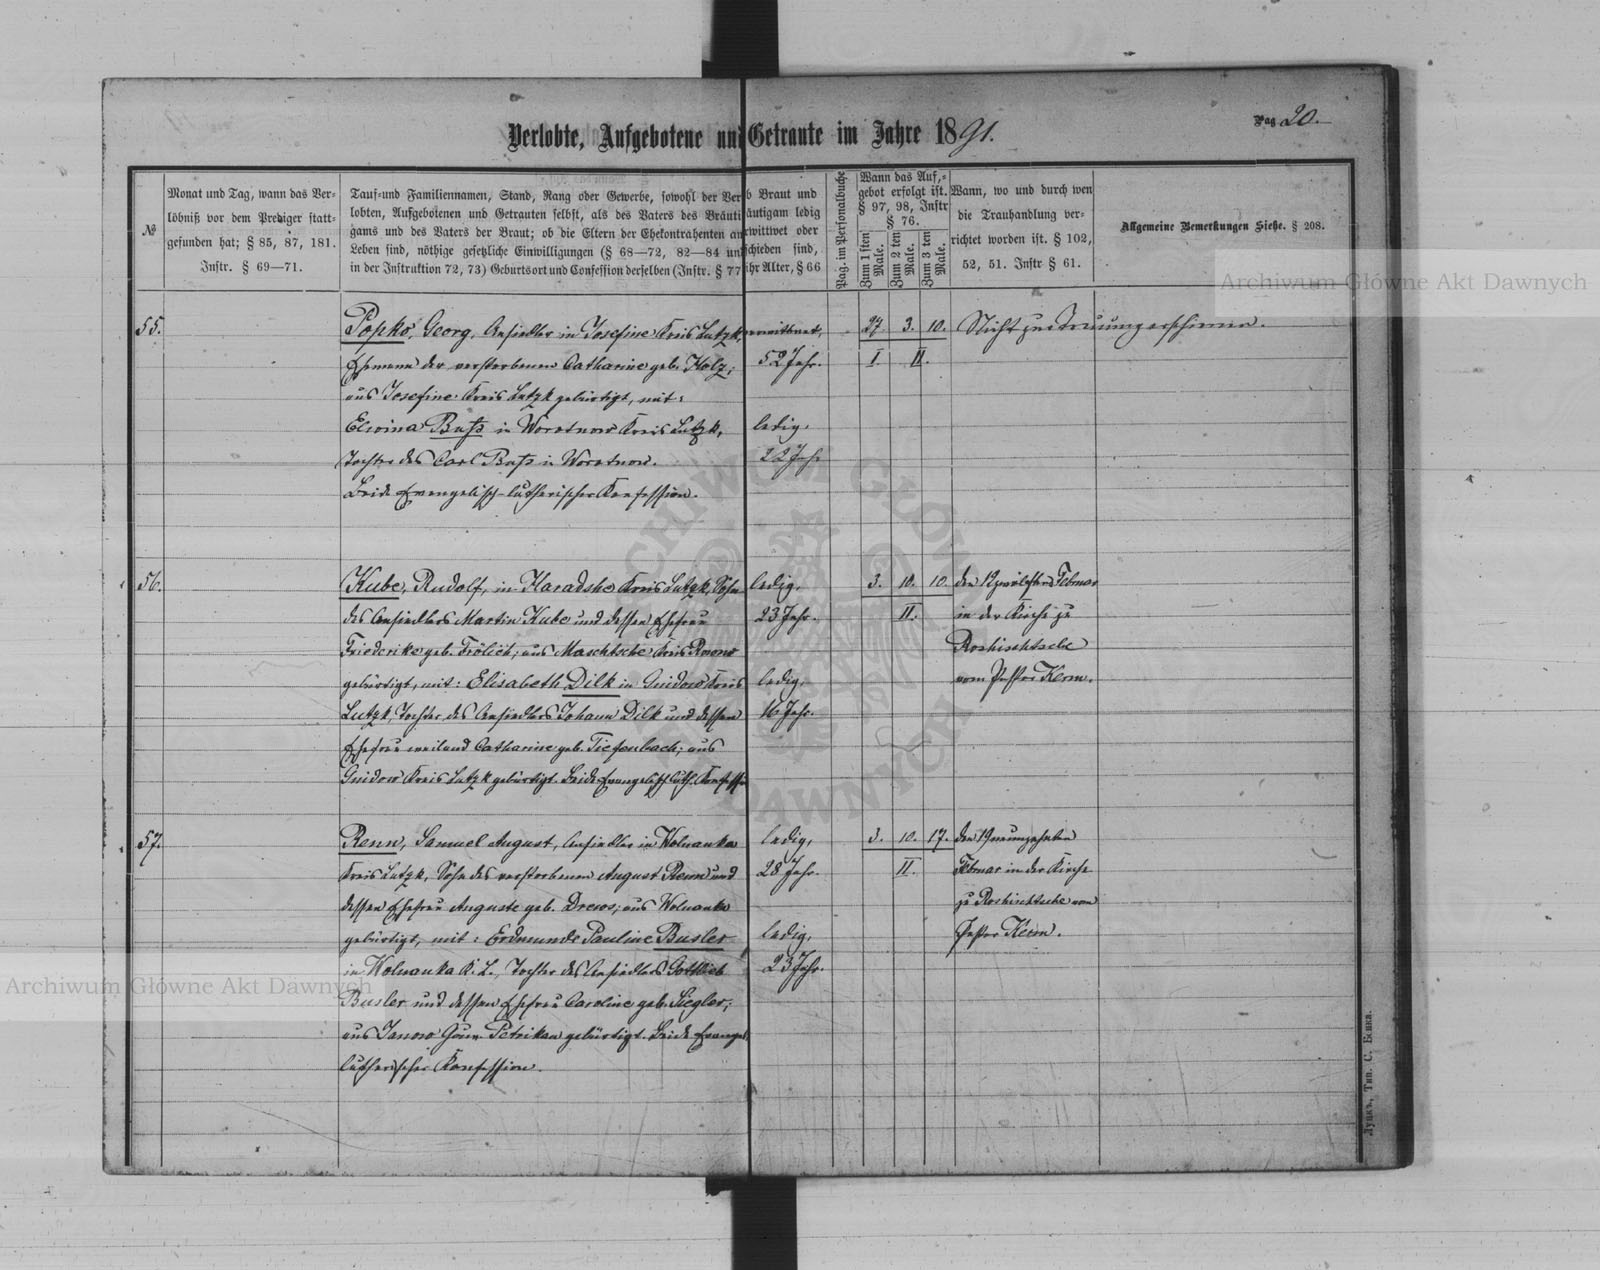 Pag. 20.
Verlobte, Aufgebotene und Getraute im Jahre 1891.
№
Monat und Tag, wann das Ver-
löbniß vor dem Prediger statt-
gefunden hat; § 85, 87, 181.
Instr. § 69—71.
Tauf- und Familiennamen, Stand, Rang oder Gewerbe, sowohl der Ver-
lobten, Aufgebotenen und Getrauten selbst, als des Vaters des Bräuti-
gams und des Vaters der Braut; ob die Eltern der Ehekontrahenten am
Leben sind, nöthige gesetzliche Einwilligungen (§ 68—72, 82—84 und
in der Instruktion 72, 73) Geburtsort und Confession derselben (Instr. § 77
b Braut und
äutigam ledig
rwittwet oder
schieden sind,
ihr Alter, § 66
Pag. im Personalbuche
Wann das Auf-
gebot erfolgt ist.
§ 97, 98, Instr
§ 76.
Zum 1 sten Male.
Zum 2 ten Male.
Zum 3 ten Male.
Wann, wo und durch wen
die Trauhandlung ver-
richtet worden ist. § 102,
52, 51. Instr § 61.
Allgemeine Bemerkungen Siehe. § 208.
Archiwum Główne Akt Dawnych
55.
Popko, Georg, Ansiedler in Josefine Kreis Lutzk,
verwittwet,
27. 3. 10.
Nicht zur Trauung erschienen.
Ehemann der verstorbenen Catharine geb. Holz;
52 Jahr.
I. II.
aus Josefine Kreis Lutzk gebürtigt, mit:
Elwina Buß in Woratnow Kreis Lutzk,
ledig,
Tochter des Carl Buß in Woratnow.
22 Jahr
Beide Evangelisch-lutherischer Konfession.
56.
Kube, Rudolf, in Haradshe Kreis Lutzk, Sohn
ledig,
3. 10. 10.
den 12 zwölften Februar
des Ansiedlers Martin Kube und dessen Ehefrau
23 Jahr.
II.
in der Kirche zu
Friederike geb. Frölich; aus Maschtsche Kreis Rowno
Roshischtsche
gebürtigt, mit: Elisabeth Dilk in Gnidow Kreis
ledig,
vom Pastor Kerm.
Lutzk, Tochter des Ansiedlers Johann Dilk und dessen
16 Jahr.
Ehefrau weiland Catharine geb. Tiefenbach; aus
Gnidow Kreis Lutzk gebürtigt. Beide Evangelisch luth. Konfession
57.
Renn, Samuel August, Ansiedler in Wolnanka
ledig,
3. 10. 17.
den 19 neunzehnten
Kreis Lutzk, Sohn des verstorbenen August Renn und
28 Jahr.
II.
Februar in der Kirche
dessen Ehefrau Auguste geb. Drews; aus Wolnanka
zu Roshischtsche von
gebürtigt, mit: Erdmunde Pauline Busler
ledig,
Pastor Kerm.
in Wolnanka K. L., Tochter des Ansiedlers Gottlieb
23 Jahr.
Archiwum Główne Akt Dawnych
Busler und dessen Ehefrau Caroline geb. Siegler;
aus Janow Gouv. Petrikau gebürtigt. Beide Evangel.
lutherischer Konfession.
Луцкъ, Тип. С. Бенка.
ARCHIWUM GŁÓWNE
AKT DAWNYCH